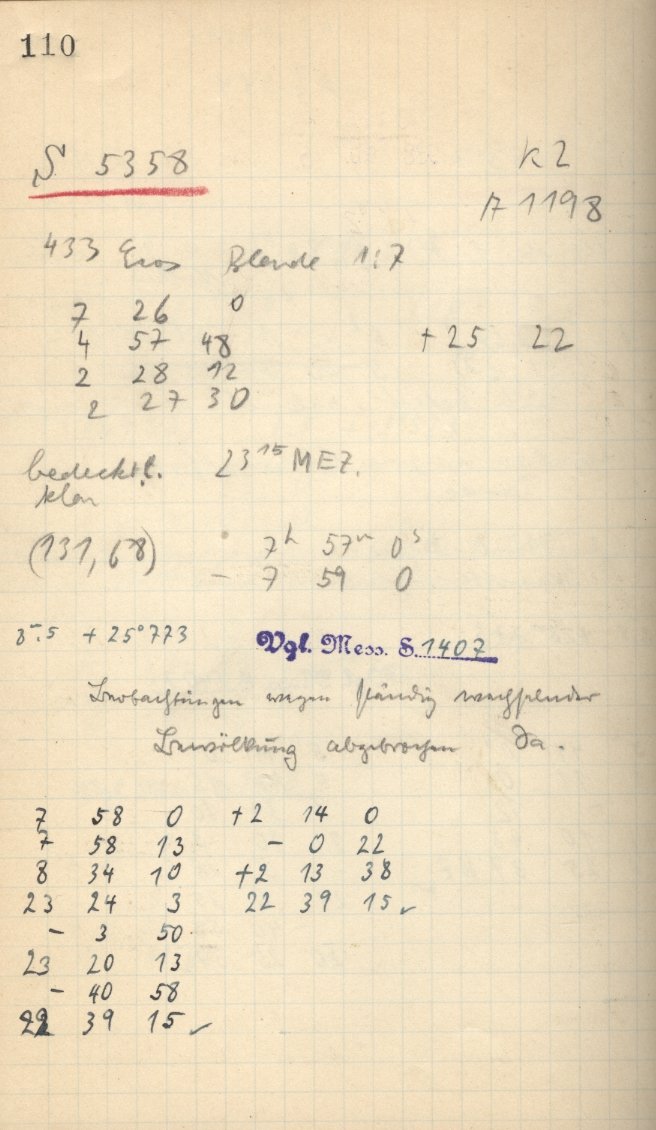 110
S 5358 K 2
A 1198
433 Eros Blende 1:7
7 26 0
4 57 48 + 25 22
2 28 12
2 27 30
bedeckt 23 15 MEZ.
klar
(131, 68) 7h 57m 0s
- 7 59 0
8m.5 + 25°773 Vgl. Mess. S. 1407
Beobachtungen wegen ständig wechselnder
Bewölkung abgebrochen Da.
7 58 0 +2 14 0
7 58 13 - 0 22
8 34 10 +2 13 38
23 24 3 22 39 15 ✓
- 3 50
23 20 13
- 40 58
22 39 15 ✓